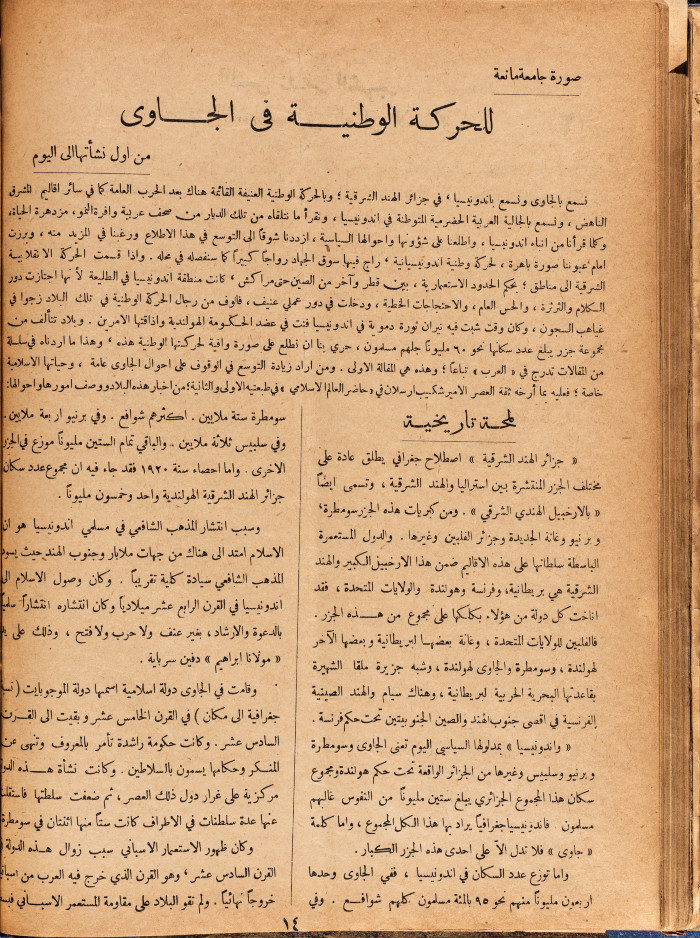 صورة جامعة مانعة
للحركة الوطنية في الجاوى
من اول نشأتها الى اليوم
نسمع بالجاوى ونسمع باندونيسيا ، في جزائر الهند الشرقية ؛ وبالحركة الوطنية العنيفة القائمة هناك بعد الحرب العامة كما في سائر اقاليم المشرق
الناهض ، ونسمع بالجالية العربية الحضرمية المتوطنة في اندونيسيا ، ونقرأ ما نتلقاه من تلك الديار من صحف عربية وافرة النمو ، مزدهرة الحياة ،
وكلما قرأنا من انباء اندونيسيا ، واطلعنا على شؤونها واحوالها السياسية ، ازددنا شوقاً الى التوسع في هذا الاطلاع ورغبنا في المزيد منه ، وبرزت
امام عيوننا صورة باهرة ، لحركة وطنية اندونيسيانية ، راج فيها سوق الجهاد رواجاً كبيراً كما سنفصله في محله . واذا قسمت الحركة الانقلابية
الشرقية الى مناطق ؛ بحكم الحدود الاستعمارية ، بين قطر وآخر من الصين حتى مراكش ، كانت منطقة اندونيسيا في الطليعة لأنها اجتازت دور
السكلام والثرثرة ، والحس العام ، والاحتجاجات الخطية ، ودخلت في دور عملي عنيف ، فالوف من رجال الحركة الوطنية في تلك البلاد زجوا في
غياهب السجون ، وكان وقت شبت فيه نيران ثورة دموية في اندونيسيا فتت في عضد الحكومة الهولندية واذاقتها الامرين . وبلاد تتألف من
مجموعة جزر يبلغ عدد سكانها نحو ٦٠ مليوناً جلهم مسلمون ، حري بنا ان نطلع على صورة وافية لحركتها الوطنية هذه ، وهذا ما اردناه في سلسلة
من المقالات تدرج في « العرب » تباعاً ؛ وهذه هي المقالة الاولى . ومن اراد زيادة التوسع في الوقوف على احوال الجاوى عامة ، وحياتها الاسلامية
خاصة ؛ فعليه بما أرخه ثقة العصر الامير شكيب ارسلان في «حاضر العالم الاسلامي» في طبعتيه الاولى والثانية؛ من اخبار هذه البلاد ووصف امورها واحوالها:
لمحة تاريخية
« جزائر الهند الشرقية » اصطلاح جغرافي يطلق عادة على
مختلف الجزر المنتشرة بين استراليا والهند الشرقية ، وتسمى ايضاً
« بالارخبيل الهندي الشرقي » . ومن كبريات هذه الجزر سومطرة ،
وبرنيو وغانة الجديدة وجزائر الفلبين وغيرها . والدول المستعمرة
الباسطة سلطانها على هذه الاقاليم ضمن هذا الارخبيل الكبير والهند
الشرقية هي بريطانية، وفرنسة وهولندة والولايات المتحدة ، فقد
اناخت كل دولة من هؤلاء بكلكلها على مجموع من هذه الجزر .
فالفلبين للولايات المتحدة ، وغانة بعضها لبريطانية و بعضها الآخر
لهولندة ، وسومطرة والجاوى لهولندة ، وشبه جزيرة ملقا الشهيرة
بقاعدتها البحرية الحربية لبريطانية ، وهناك سيام والهند الصينية
الفرنسية في اقصى جنوب الهند والصين الجنوبيتين تحت حكم فرنسة .
« واندونيسيا » بمدلولها السياسي اليوم تعنى الجاوى وسومطرة
و برنيو وسلبيس وغيرها من الجزائر الواقعة تحت حكم هولندة ومجموع
سكان هذا المجموع الجزائري يبلغ ستين مليوناً من النفوس غالبهم
مسلمون . فاندونيسيا جغرافياً يراد بها هذا الكل المجموع ، واما كلمة
« جاوى » فلا تدل الاّ على احدى هذه الجزر الكبار .
واما توزع عدد السكان في اندونيسيا ، ففي الجاوى وحدها
اربعون مليوناً منهم نحو ٩٥ بالمئة مسلمون كلهم شوافع . وفي
سومطرة ستة ملايين . اكثرهم شوافع . وفي برنيو اربعة ملايين .
وفي سلبيس ثلاثة ملايين . والباقي تمام الستين مليوناً موزع في الجزر
الاخرى . واما احصاء سنة ١٩٢٠ فقد جاء فيه ان مجموع عدد سكان
جزائر الهند الشرقية الهولندية واحد وخمسون مليوناً .
وسبب انتشار المذهب الشافعي في مسلمي اندونيسيا هو ان
الاسلام امتد الى هناك من جهات ملابار وجنوب الهند حيث يسود
المذهب الشافعي سيادة كلية تقريباً . وكان وصول الاسلام الى
اندونيسيا في القرن الرابع عشر ميلادياً وكان انتشاره انتشاراً سلمياً
بالدعوة والارشاد ، بغير عنف ولا حرب ولا فتح ، وذلك على يد
« مولانا ابراهيم » دفين سرباية .
وقامت في الجاوى دولة اسلامية اسمها دولة الموجوبايت (
جغرافية الى مكان ) في القرن الخامس عشر وبقيت الى القرن
السادس عشر . وكانت حكومة راشدة تأمر بالمعروف وتنهى عن
المنكر وحكامها يسمون بالسلاطين . وكانت نشأة هذه
مركزية على غرار دول ذلك العصر ، ثم ضعفت سلطتها فاستقلت
عنها عدة سلطنات في الاطراف كانت ستاً منها اثنتان في سومطرة
وكان ظهور الاستعمار الاسباني سبب زوال هذه الدولة
القرن السادس عشر ، وهو القرن الذي خرج فيه العرب من
خروجاً نهائياً . ولم تقو البلاد على مقاومة المستعمر الاسباني
١٤